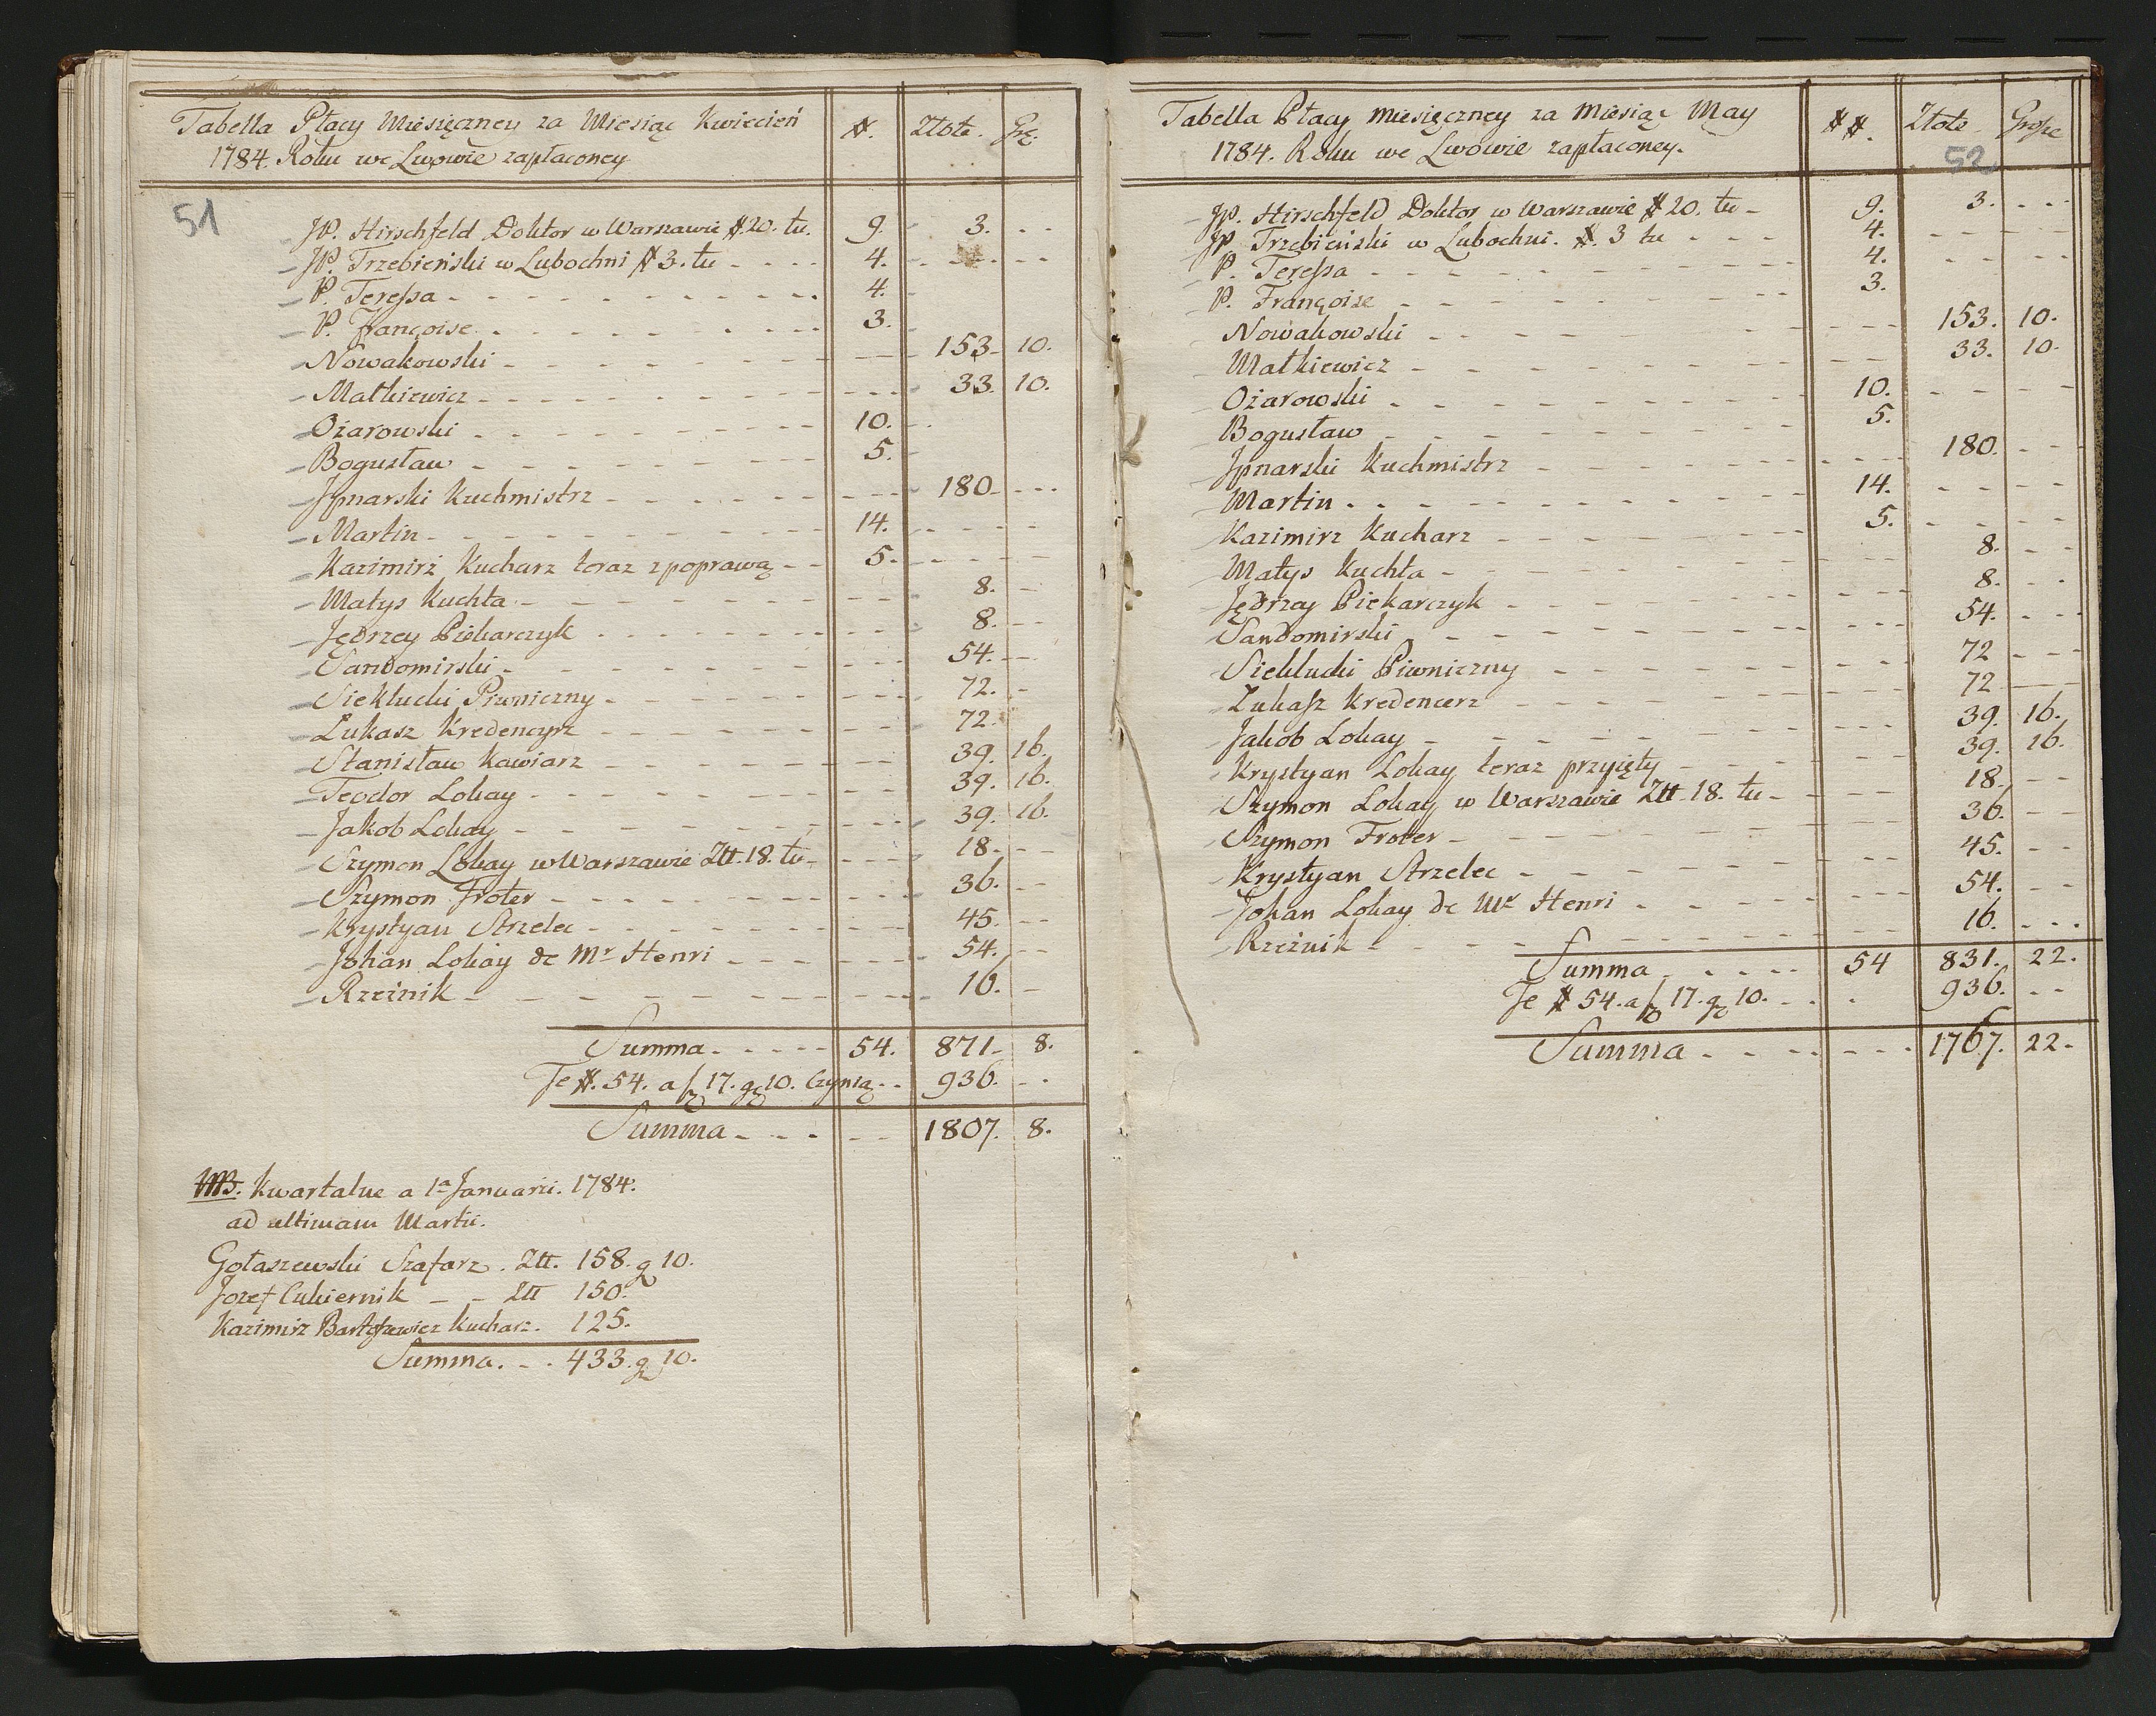 Tabella Płacy Miesięczney za Miesiąc Kwiecień #. Złote. Grꝫ.
1784. Roku we Lwowie zapłaconey
51
JP. Hirschfeld Doktor w Warszawie #. 20. tu. 9. 3.
JP. Trzebieński w Lubochni # 3. tu 4.
P. Teressa 4.
P. Françoise 3.
Nowakowski 153. 10.
Matkiewicz 33. 10.
Ożarowski 10.
Bogusław 5.
Jpnarski Kuchmistrz 180.
Martin 14.
Kazimirz Kucharz teraz z poprawą 5.
Matys Kuchta 8.
Jędrzey Piekarczyk 8.
Sandomirski 54.
Siekłucki Piwniczny 72.
Łukasz Kredencyrz 72.
Stanisław Kawiarz 39. 16.
Teodor Lokay 39. 16.
Jakob Lokay 39. 16.
Szymon Lokay w Warszawie Złł. 18. tu 18.
Szymon Froter 36.
Krystyan Strzelec 45.
Johan Lokay de Mr Henri 54.
Rzeźnik 16.
Summa 54. 871. 8.
Te #. 54. a fꝫ 17. gꝫ 10. Czynią 936.
Summa 1807. 8.
NB. Kwartalne a 1a Januarii. 1784.
ad ultimam Martii.
Gołaszewski Szafarz. Złł. 158. gꝫ 10.
Jozef Cukiernik Złł 150.
Kazimirz Bartoszewicz Kucharz. 125.
Summa. 433. gꝫ 10.
Tabella Płacy miesięczney za Miesiąc May ##. Złote Grosze
1784. Roku we Lwowie zapłaconey.
52
JP. Hirschfeld Doktor w Warszawie # 20. tu 9. 3.
JP Trzebieński w Lubochni. #. 3 tu 4.
P. Teressa 4.
P. Françoise 3.
Nowakowski 153. 10.
Matkiewicz 33. 10.
Ożarowski 10.
Bogusław 5.
Jpnarski Kuchmistrz 180.
Martin 14.
Kazimirz Kucharz 5.
Matys Kuchta 8.
Jędrzey Piekarczyk 8.
Sandomirski 54.
Siekłucki Piwniczny 72
Łukasz Kredencerz 72
Jakob Lokay 39. 16.
Krystyan Lokay teraz przyięty 39. 16.
Szymon Lokay w Warszawie Złł 18. tu 18.
Szymon Froter 36.
Krystyan Strzelec 45.
Johan Lokay de Mr Henri 54.
Rzeźnik 16.
Summa 54 831. 22.
Te # 54. a fꝫ 17. gꝫ 10. 936.
Summa 1767. 22.